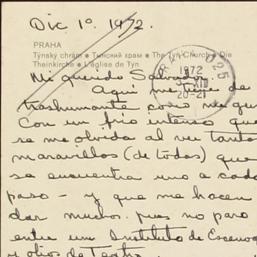 Dic 1º 1972.
PRAHA
Týnský chrám • Тынский храм • The Tyn Church • Die
Theinkirche • L'église de Tyn
Mi querido Salvador
Aquí me tiene de
trashumante como me que
Con un frio intenso que
se me olvida al ver tantas
maravillas (de todas) que
se encuentra uno a cada
paso — y que me hacen
dar muchos. pues no paro
entre un Instituto de Escenog
y otros de Teatro
1972
20-21